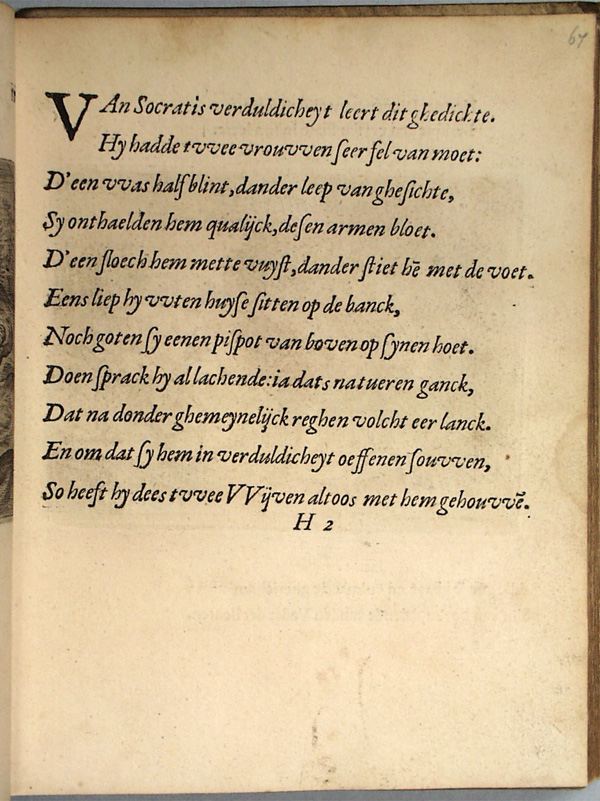 67
VAn Socratis verduldicheyt leert dit ghedichte.
Hy hadde tvvee vrouvven seer fel van moet:
D'een vvas half blint, dander leep van ghesichte,
Sy onthaelden hem qualijck, desen armen bloet.
D'een sloech hem mette vuyst, dander stiet hē met de voet.
Eens liep hy vvten huyse sitten op de banck,
Noch goten sy eenen pispot van boven op synen hoet.
Doen sprack hy al lachende: ia dats natueren ganck,
Dat na donder ghemeynelijck reghen volcht eer lanck.
En om dat sy hem in verduldicheyt oeffenen souvven,
So heeft hy dees tvvee VVijven altoos met hem gehouvvē.
H 2